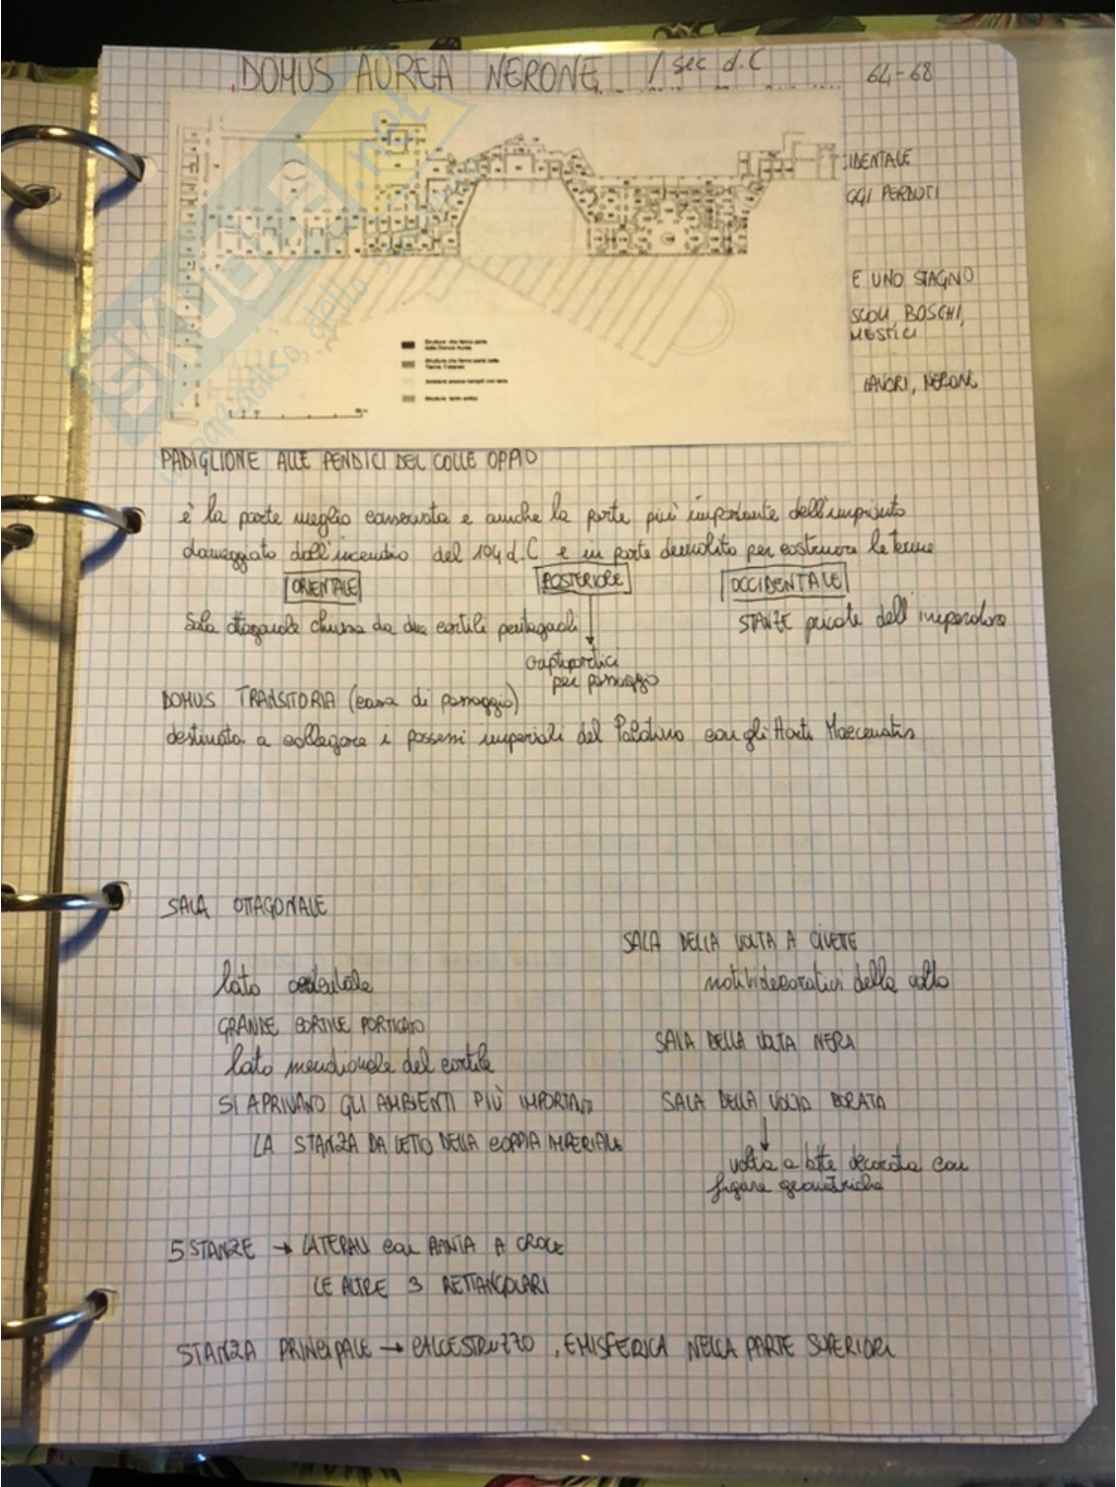 DOMUS AUREA NERONE I sec d.C 64-68
IDENTALE
GGI PERDUTI
E UNO STAGNO
SCOLI, BOSCHI,
MESTICI
LAVORI, NERONE
PADIGLIONE ALLE PENDICI DEL COLLE OPPIO
è la parte meglio conservata e anche la parte più importante dell'impianto
danneggiato dall'incendio del 104 d.C e in parte demolito per costruire le terme
ORIENTALE POSTERIORE OCCIDENTALE
Sala ottagonale chiusa da due cortili pentagonali STANZE private dell'imperatore
criptoportici
per passaggio
DOMUS TRANSITORIA (casa di passaggio)
destinata a collegare i possessi imperiali del Palatino con gli Horti Maecenatis
SALA OTTAGONALE
SALA DELLA VOLTA A CIVETTE
lato
motivi decorativi della volta
GRANDE CORTILE PORTICATO
SALA DELLA VOLTA NERA
lato meridionale del cortile
SI APRIVANO GLI AMBIENTI PIÙ IMPORTANTI
SALA DELLA VOLTA DORATA
LA STANZA DA LETTO DELLA COPPIA IMPERIALE
volta a botte decorata con
figure geometriche
5 STANZE → LATERALI con PIANTA A CROCE
LE ALTRE 3 RETTANGOLARI
STANZA PRINCIPALE → CALCESTRUZZO, EMISFERICA NELLA PARTE SUPERIORE
SKUOLA.net